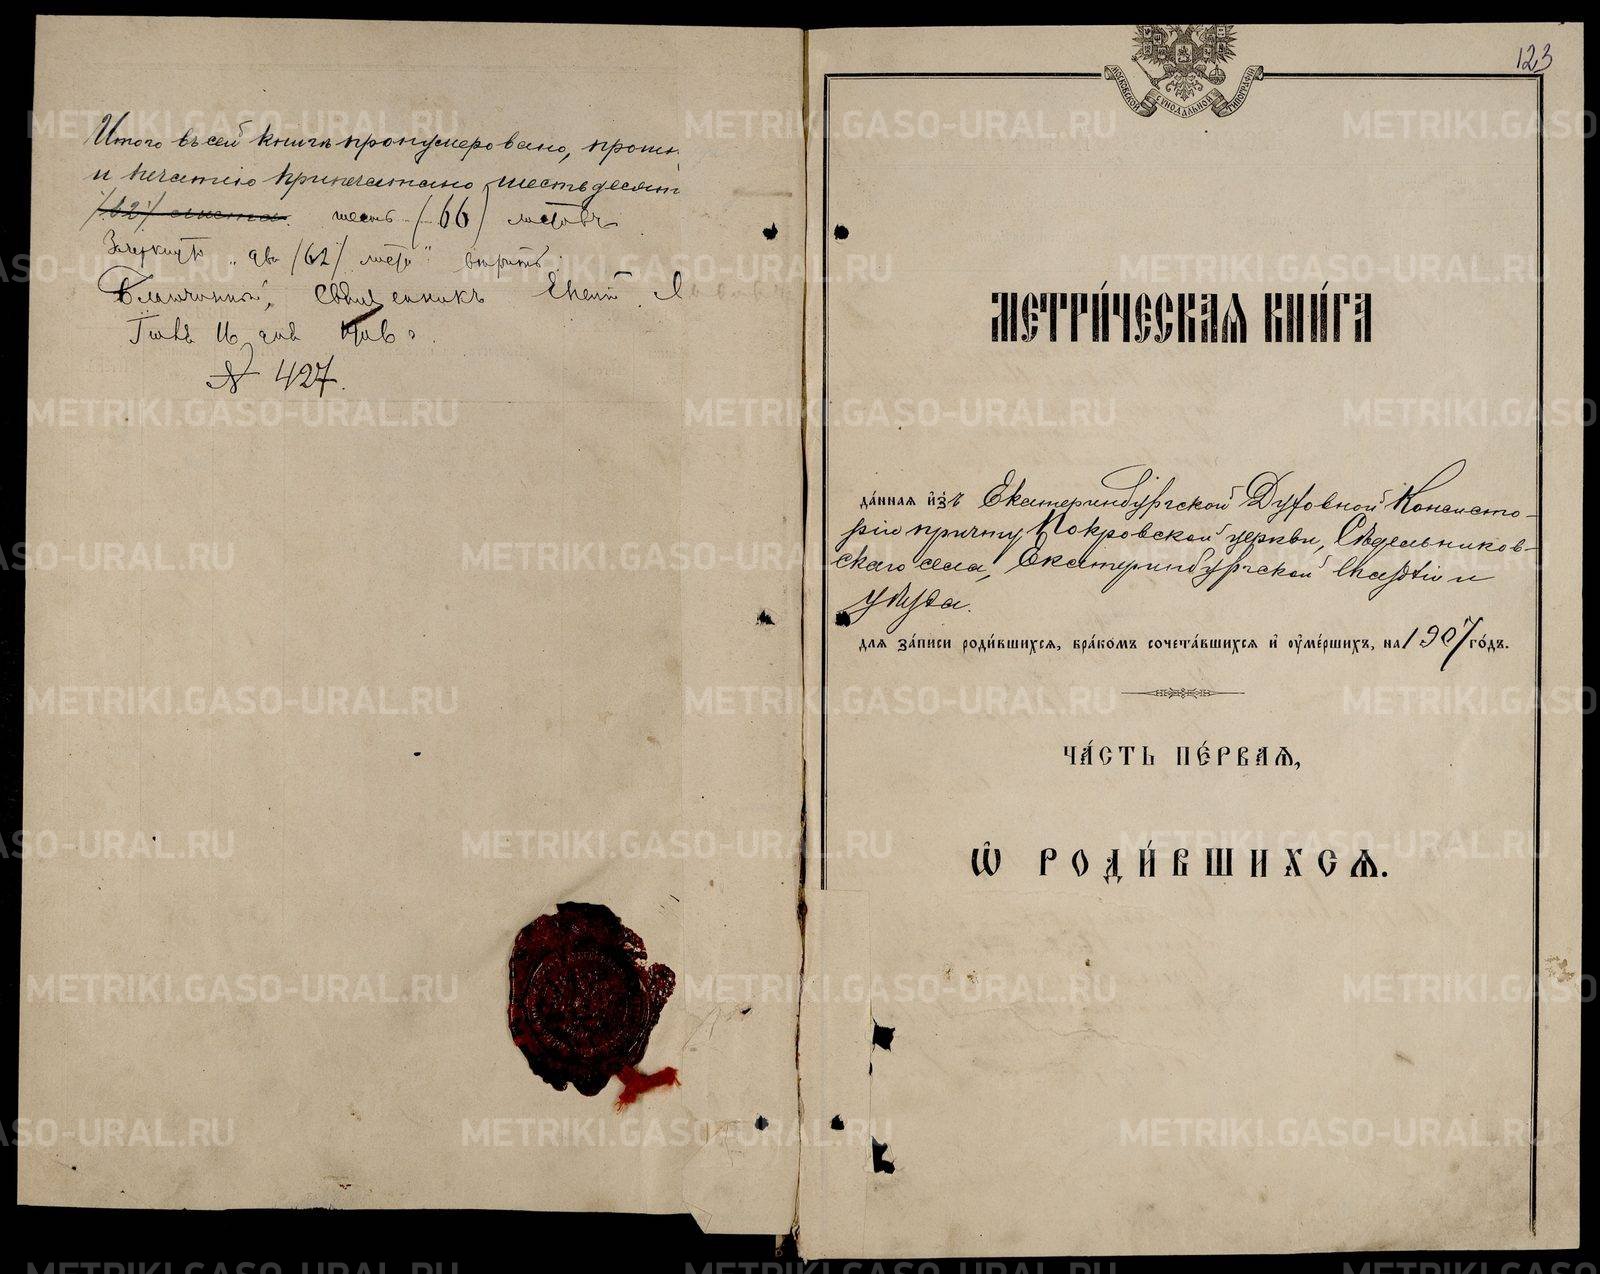 Итого въ сей книгѣ пронумеровано, прошн.
и печатію припечатано шестьдесят
/62/ листа. шесть (66) листовъ
Зачеркнуто „два /62/ листа" вѣрить:
Благочинный, Священникъ
№ 427.
123
МОСКОВСКОЙ СѴНОДАЛЬНОЙ ТИПОГРАФІИ
МЕТРИ́ЧЕСКАѦ КНИ́ГА
да́ннаѧ и҆зъ Екатеринбургской Духовной Консисто-
ріи причту Покровской церкви, Сѣдельников-
скаго села, Екатеринбургской епархіи и
уѣзда.
для за́писи роди́вшихсѧ, бра́комъ сочета́вшихсѧ и҆ оу҆ме́ршихъ, на 1907 го́дъ.
ЧА́СТЬ ПЕ́РВАѦ,
Ѽ РОДИ́ВШИХСѦ.
METRIKI.GASO-URAL.RU